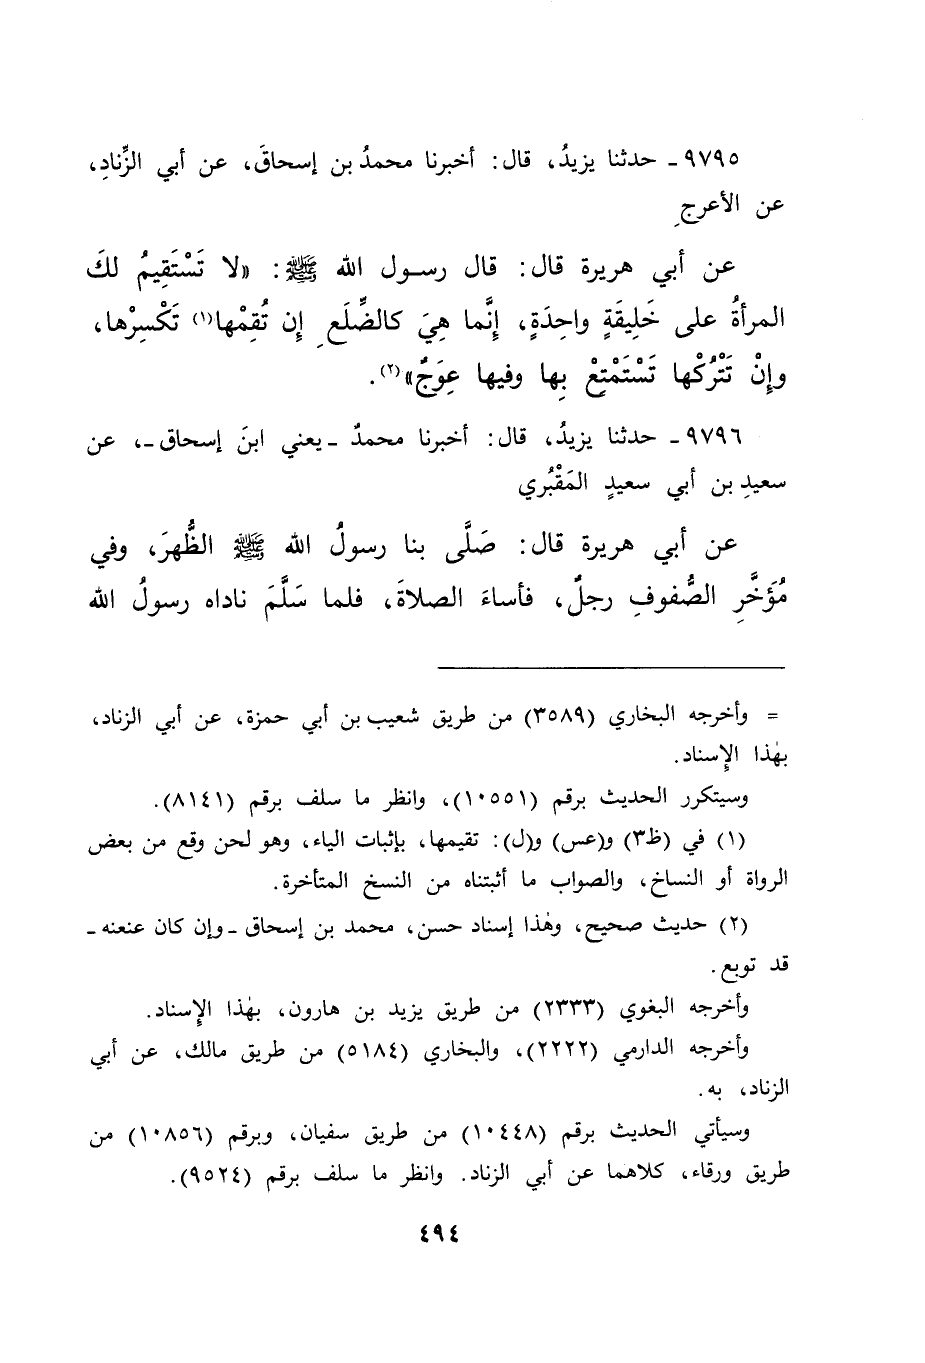 ٩٧٩٥ ـ حدثنا يزيدُ، قال: أخبرنا محمدُ بن إسحاقَ، عن أبي الزِّنادِ،
عن الأعرجِ
عن أبي هريرة قال: قال رسول الله ﷺ: «لا تَسْتَقِيمُ لكَ
المرأةُ على خَلِيقَةٍ واحِدَةٍ، إنَّما هِيَ كالضِّلَعِ إن تُقِمْها(١) تَكْسِرْها،
وإنْ تَتْرُكْها تَسْتَمْتِعْ بِها وفيها عِوَجٌ»(٢).
٩٧٩٦ ـ حدثنا يزيدُ، قال: أخبرنا محمدٌ ـ يعني ابنَ إسحاق ـ، عن
سعيدِ بن أبي سعيدٍ المَقْبُري
عن أبي هريرة قال: صَلَّى بنا رسولُ الله ﷺ الظُّهرَ، وفي
مُؤَخَّرِ الصُّفوفِ رجلٌ، فأساءَ الصلاةَ، فلما سَلَّمَ ناداه رسولُ الله
= وأخرجه البخاري (٣٥٨٩) من طريق شعيب بن أبي حمزة، عن أبي الزناد،
بهٰذا الإِسناد.
وسيتكرر الحديث برقم (١٠٥٥١)، وانظر ما سلف برقم (٨١٤١).
(١) في (ظ٣) و(عس) و(ل): تقيمها، بإثبات الياء، وهو لحن وقع من بعض
الرواة أو النساخ، والصواب ما أثبتناه من النسخ المتأخرة.
(٢) حديث صحيح، وهٰذا إسناد حسن، محمد بن إسحاق ـ وإن كان عنعنه ـ
قد توبع.
وأخرجه البغوي (٢٣٣٣) من طريق يزيد بن هارون، بهٰذا الإِسناد.
وأخرجه الدارمي (٢٢٢٢)، والبخاري (٥١٨٤) من طريق مالك، عن أبي
الزناد، به.
وسيأتي الحديث برقم (١٠٤٤٨) من طريق سفيان، وبرقم (١٠٨٥٦) من
طريق ورقاء، كلاهما عن أبي الزناد. وانظر ما سلف برقم (٩٥٢٤).
٤٩٤